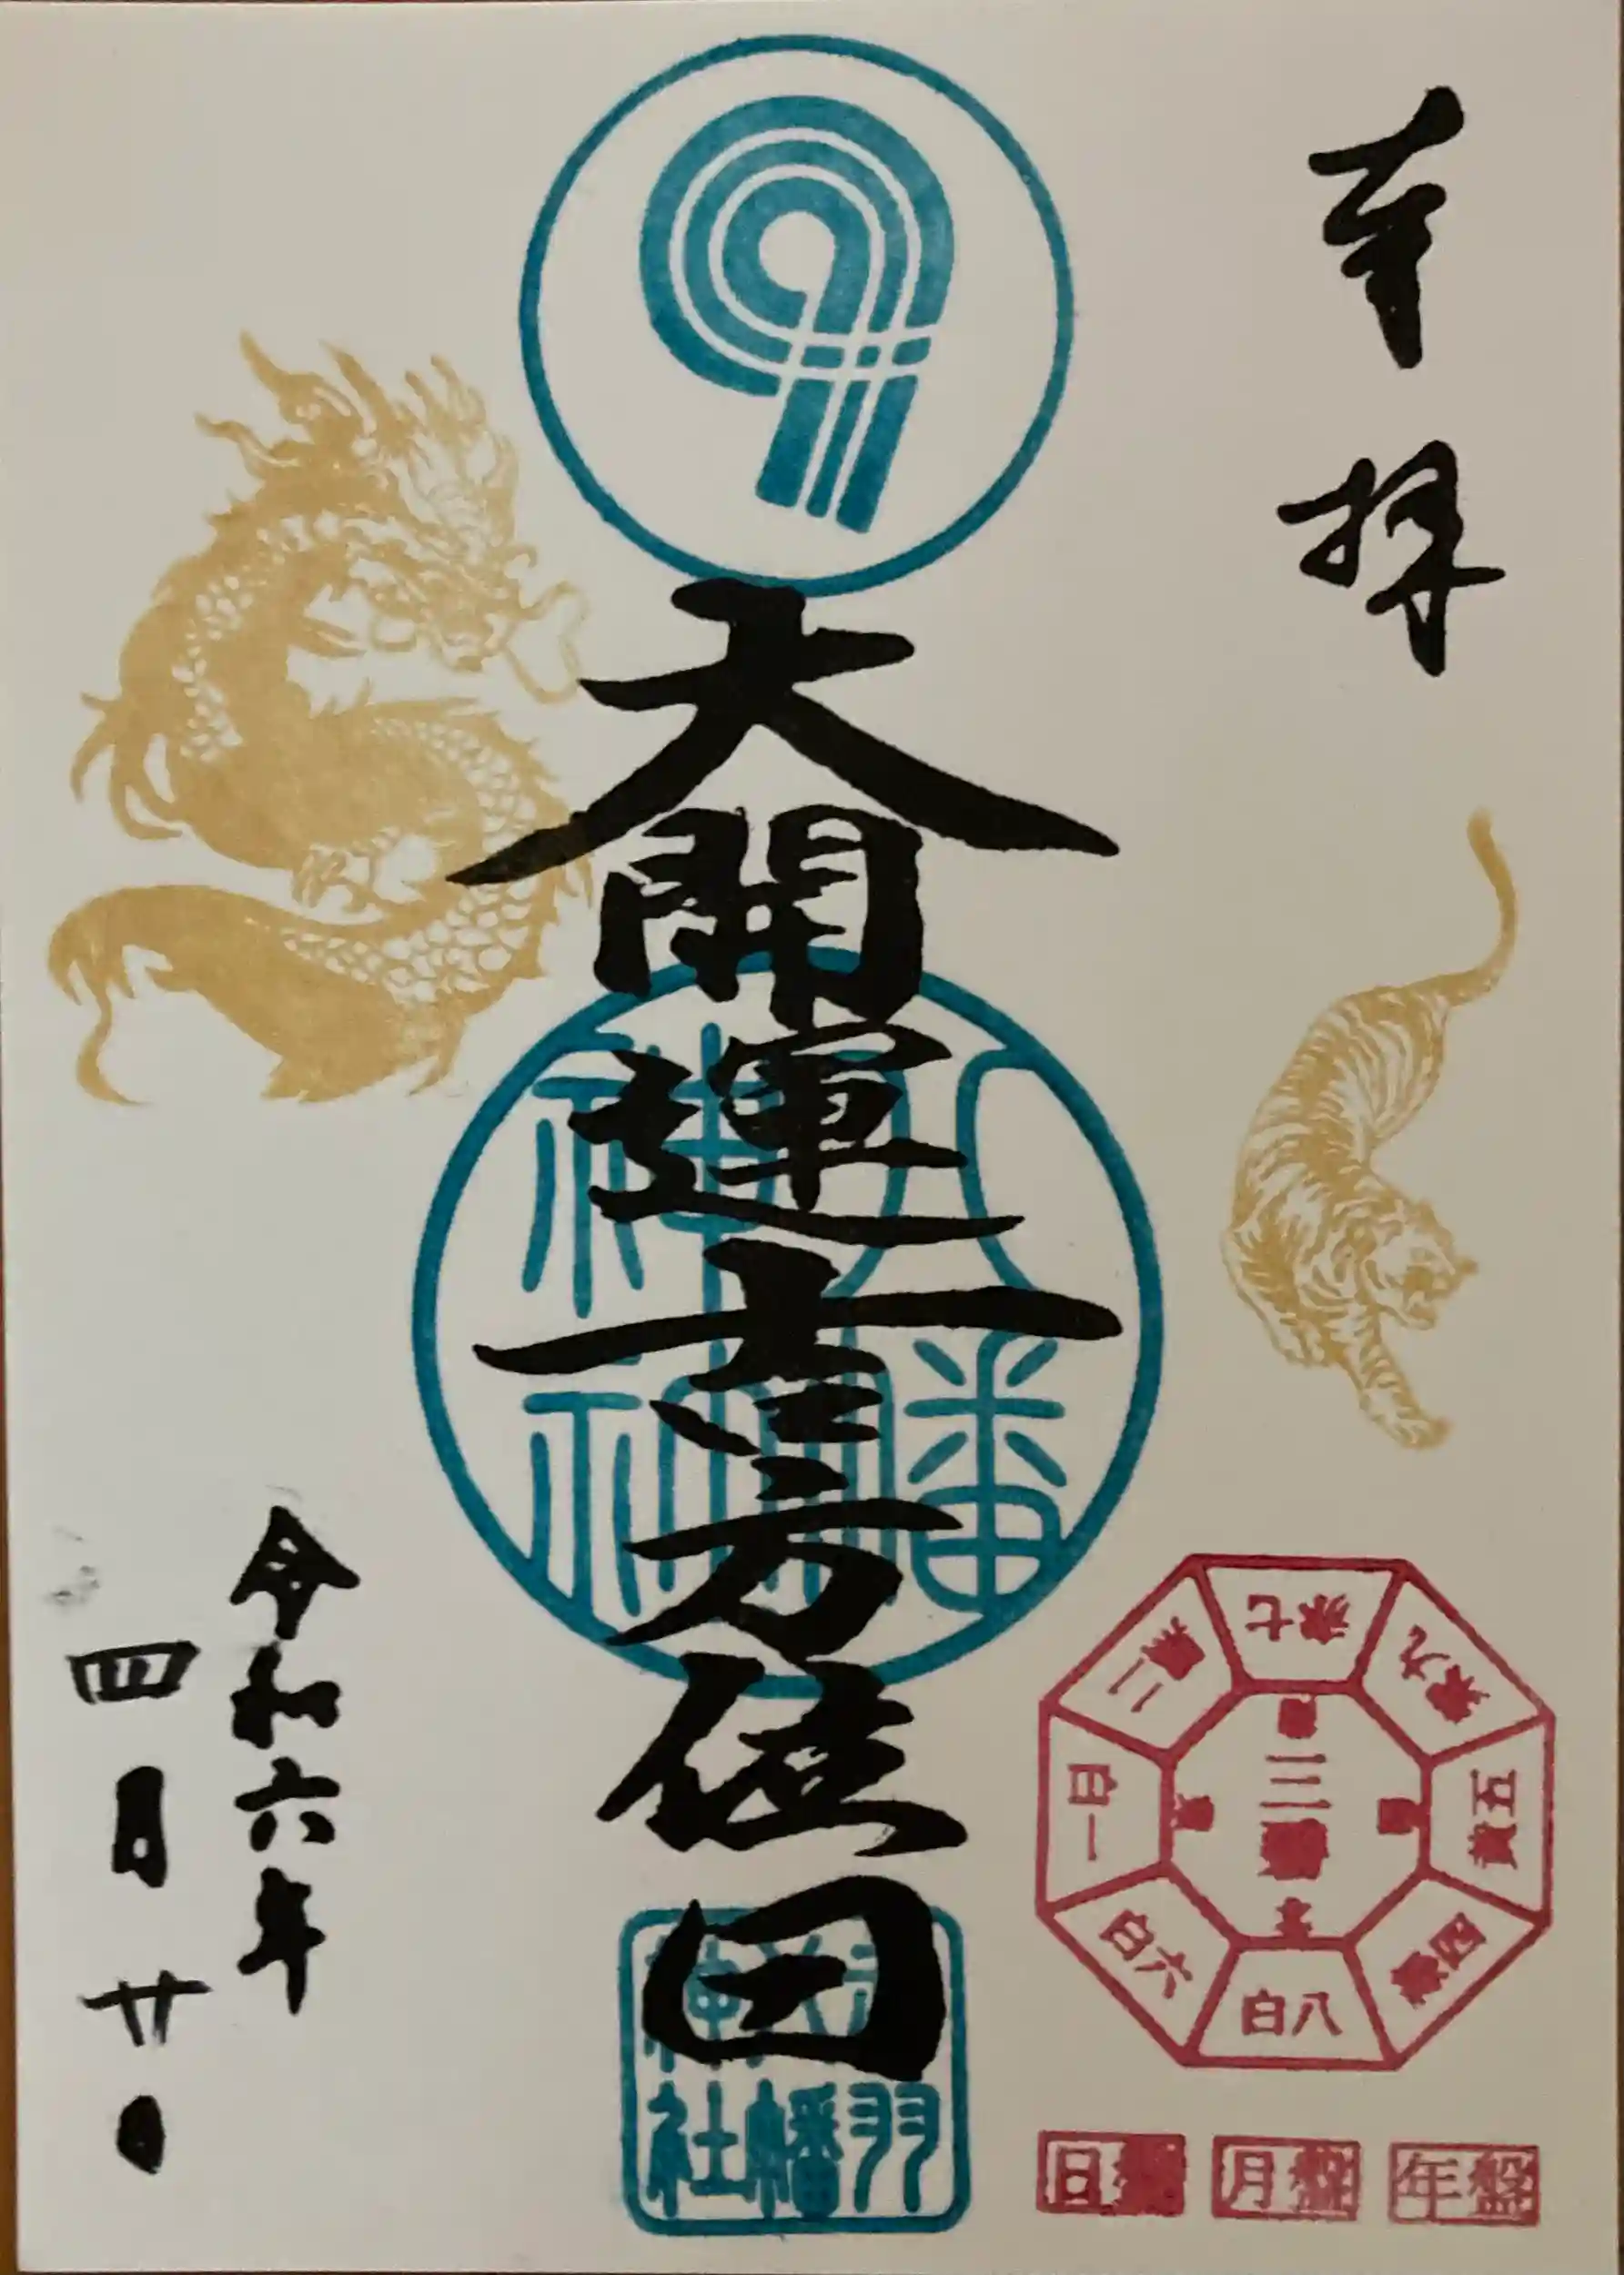 奉拝
大開運吉方位日
八幡
神社
七赤
九紫
五黄
四緑
八白
六白
一白
二黒
三碧
年盤
月盤
日盤
令和六年
四月廿日